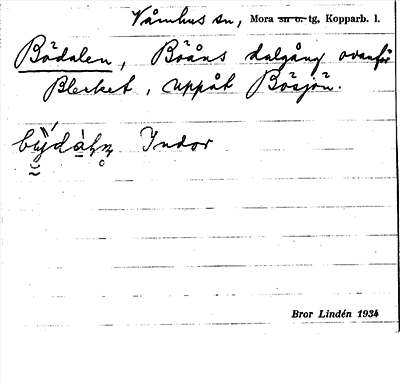 Våmhus sn, Mora sn o. tg, Kopparb. l.
Bödalen, Bööns dalgång ovanför
Blecket, uppåt Bösjön.
Indor
Bror Lindén 1934